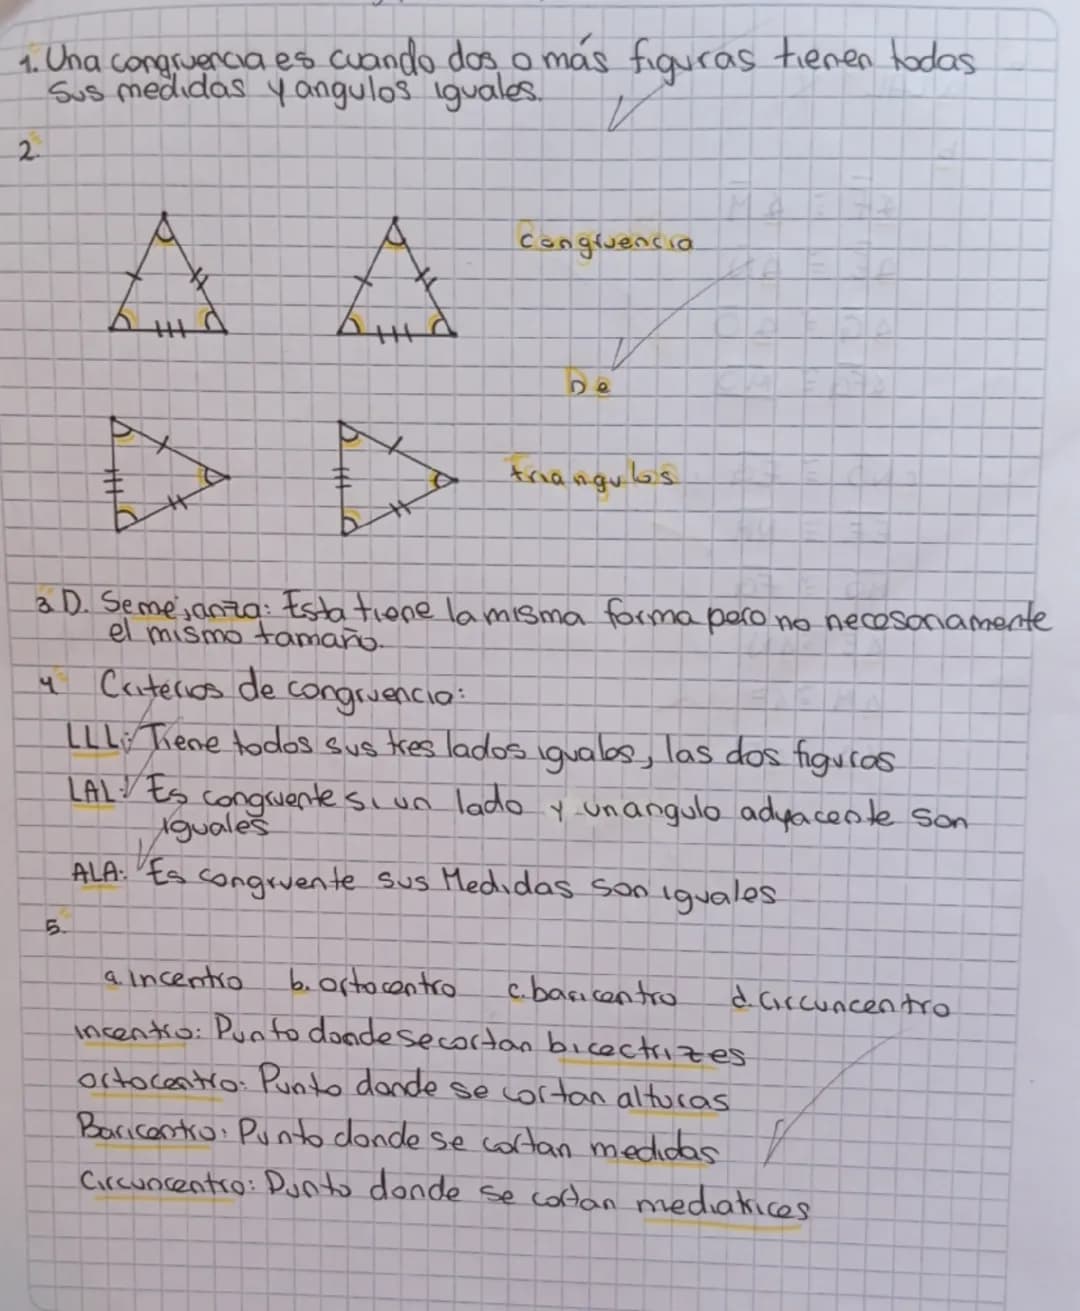 1. Una congruencia es cuando dos o más figuras tienen todas
sus medidas y angulos iguales.
2.
Congruencia
De
triangulos
3 D. Semejanza: Esta tiene la misma forma pero no necesariamente
el mismo tamaño.
4 Criterios de congruencia:
LLL: Tiene todos sus tres lados iguales, las dos figuras
LAL: Es congruente si un lado y un angulo adyacente son
iguales
ALA: Es congruente sus Medidas son iguales
5.
a. incentro b. ortocentro c. baricentro d. circuncentro
incentro: Punto donde se cortan bicectrizes
ortocentro: Punto donde se cortan alturas
Baricentro: Punto donde se cortan medidas
Circuncentro: Punto donde se cortan mediatrices